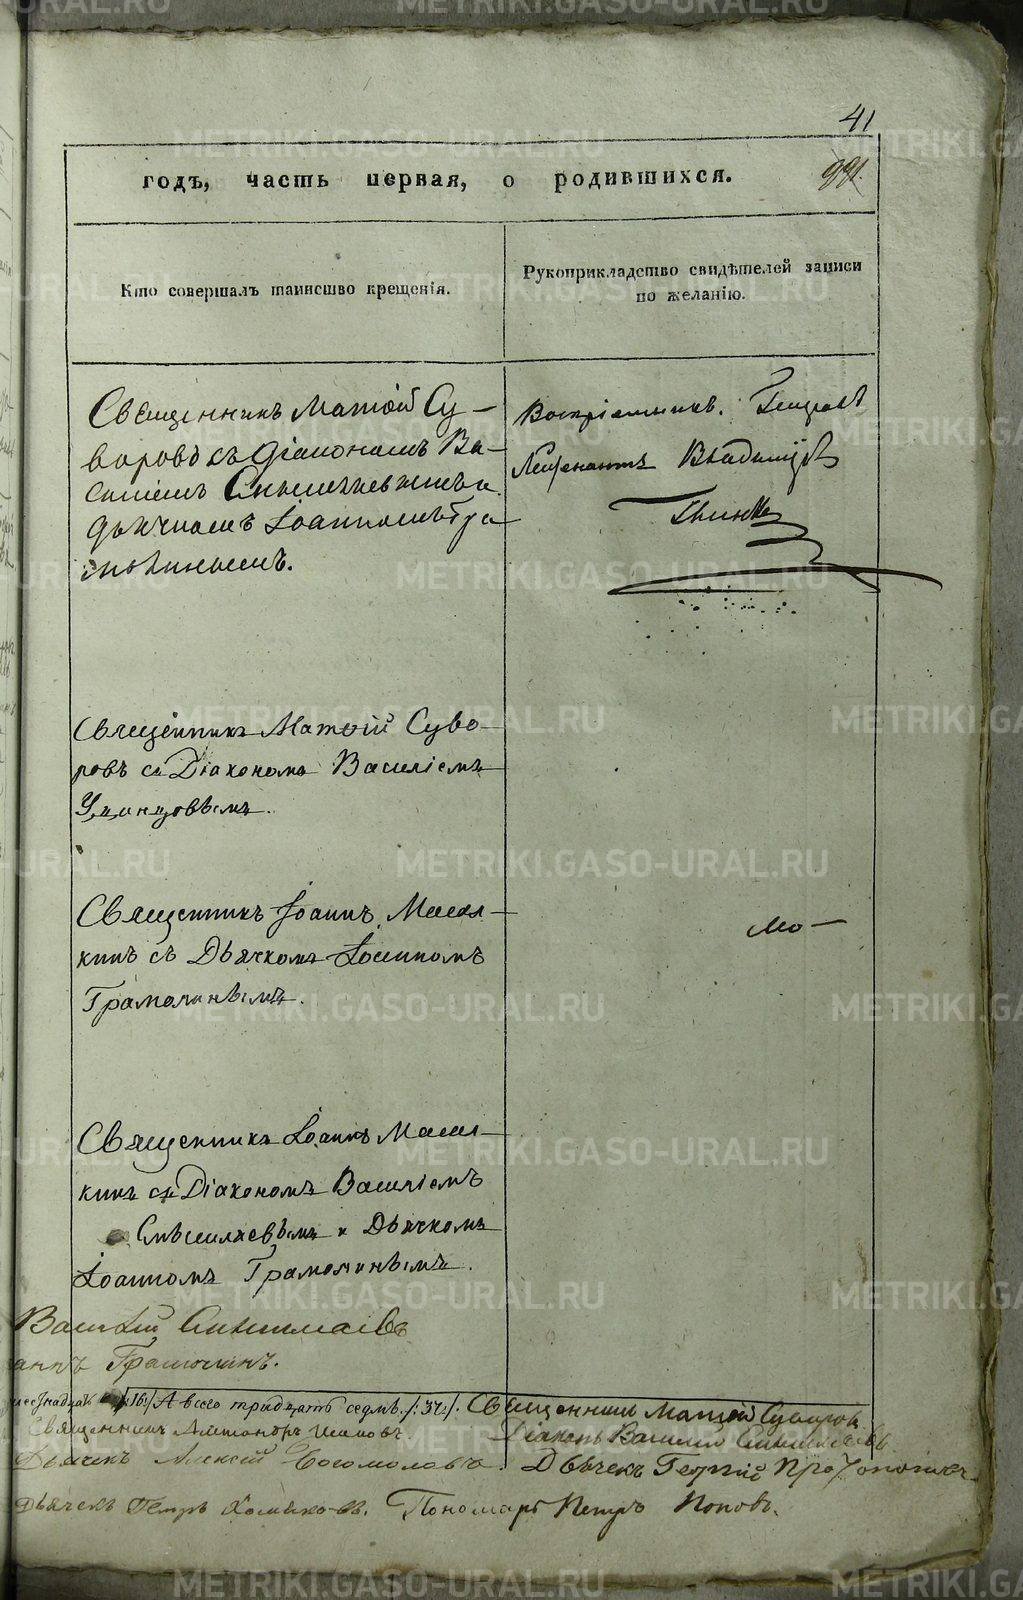 41
годъ, часть первая, о родившихся.
991
Кто совершалъ таинство крещенія.
Рукоприкладство свидѣтелей записи
по желанію.
Священникъ Матѳій Су-
воровъ съ Діакономъ Ва-
силіемъ
дьячкомъ Іоанномъ Гра-
Воспріемникъ. Генералъ
Лейтенантъ Владиміръ
Глинка
Священникъ Матѳій Суво-
ровъ съ Діакономъ Василіемъ
Удинцовымъ.
Священникъ Іоаннъ Масля-
кинъ съ Дьячкомъ Іоанномъ
Грамолинымъ.
Священникъ Іоаннъ Масля-
кинъ съ Діакономъ Василіемъ
и Дьячкомъ
Іоанномъ Грамолинымъ.
Василій
/:16:/ А всего тридцать седмь. /:37:/. Священникъ Матѳей Суворов
Священникъ Діаконъ Василій
Дьячекъ Алексій Богомоловъ. Дьячекъ Георгій
Дьячекъ Петръ Хомяковъ. Пономарь Петръ Поповъ.
METRIKI.GASO-URAL.RU